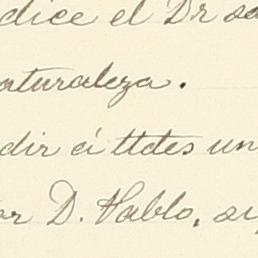 dice el Dr sa
aturaleza.
dir á Ustes un
or D. Pablo, su